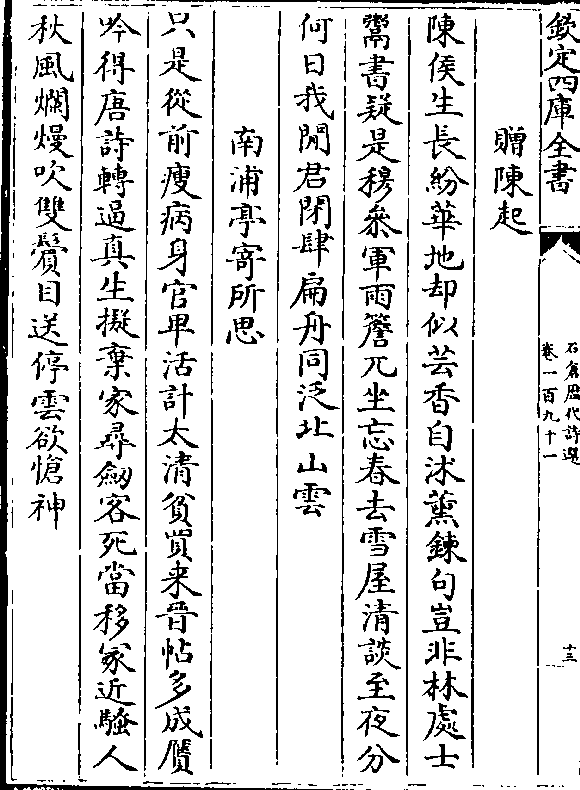 欽定四庫全書
石倉歷代詩選
卷一百九十一
十三
贈陳起
陳侯生長紛華地却似芸香自沐薰鍊句豈非林處士
鬻書疑是穆參軍雨簷兀坐忘春去雪屋清談至夜分
何日我閒君閉肆扁舟同泛北山雲
南浦亭寄所思
只是從前瘦病身官卑活計太清貧買来晉帖多成贋
吟得唐詩轉逼真生擬棄家尋劒客死當移冢近騷人
秋風爛熳吹雙鬢目送停雲欲愴神